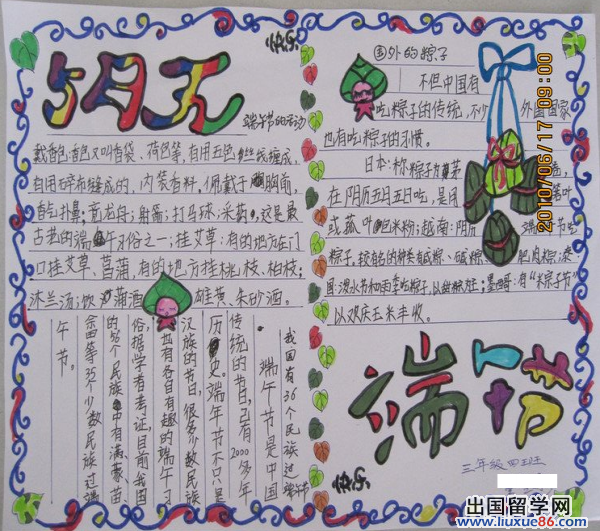 五月五
快乐
端午节的活动
戴香包:香包又叫香袋、荷包等,有用五色丝线缠成,
有用碎布缝成的,内装香料,佩戴于胸前,
香气扑鼻;赛龙舟;射箭;打马球;采药,这是最
古老的端午习俗之一;挂艾草:有的地方在门
口挂艾草、菖蒲,有的地方挂桃枝、柏枝;
沐兰汤;饮蒲酒 雄黄、朱砂酒。
我国有36个民族过端午节
端午节是中国
传统的节日,已有2000多年
历史,端午节不只是
汉族的节日,很多少数民族
也有各自有趣的端午习
俗,据学者考证,目前我国
的56个民族中有满、蒙、苗、
畲等35个少数民族过端
午节。
国外的粽子
不但中国有
吃粽子的传统,不少外国国家
也有吃粽子的习惯。
日本:称粽子为茅卷,
在阴历五月五日吃,是用 叶
或菰叶包米粉;越南:阴历 端午节吃
粽子,较有名的种类有咸粽、碱粽、肥肉粽;泰
国:泼水节和雨季吃粽子,以甜粽为主;墨西哥:有"米粽子节"
以欢庆玉米丰收。
端午节
三年级四班
快乐
2010/06/17 09:00
出国留学网
www.liuxue86.com